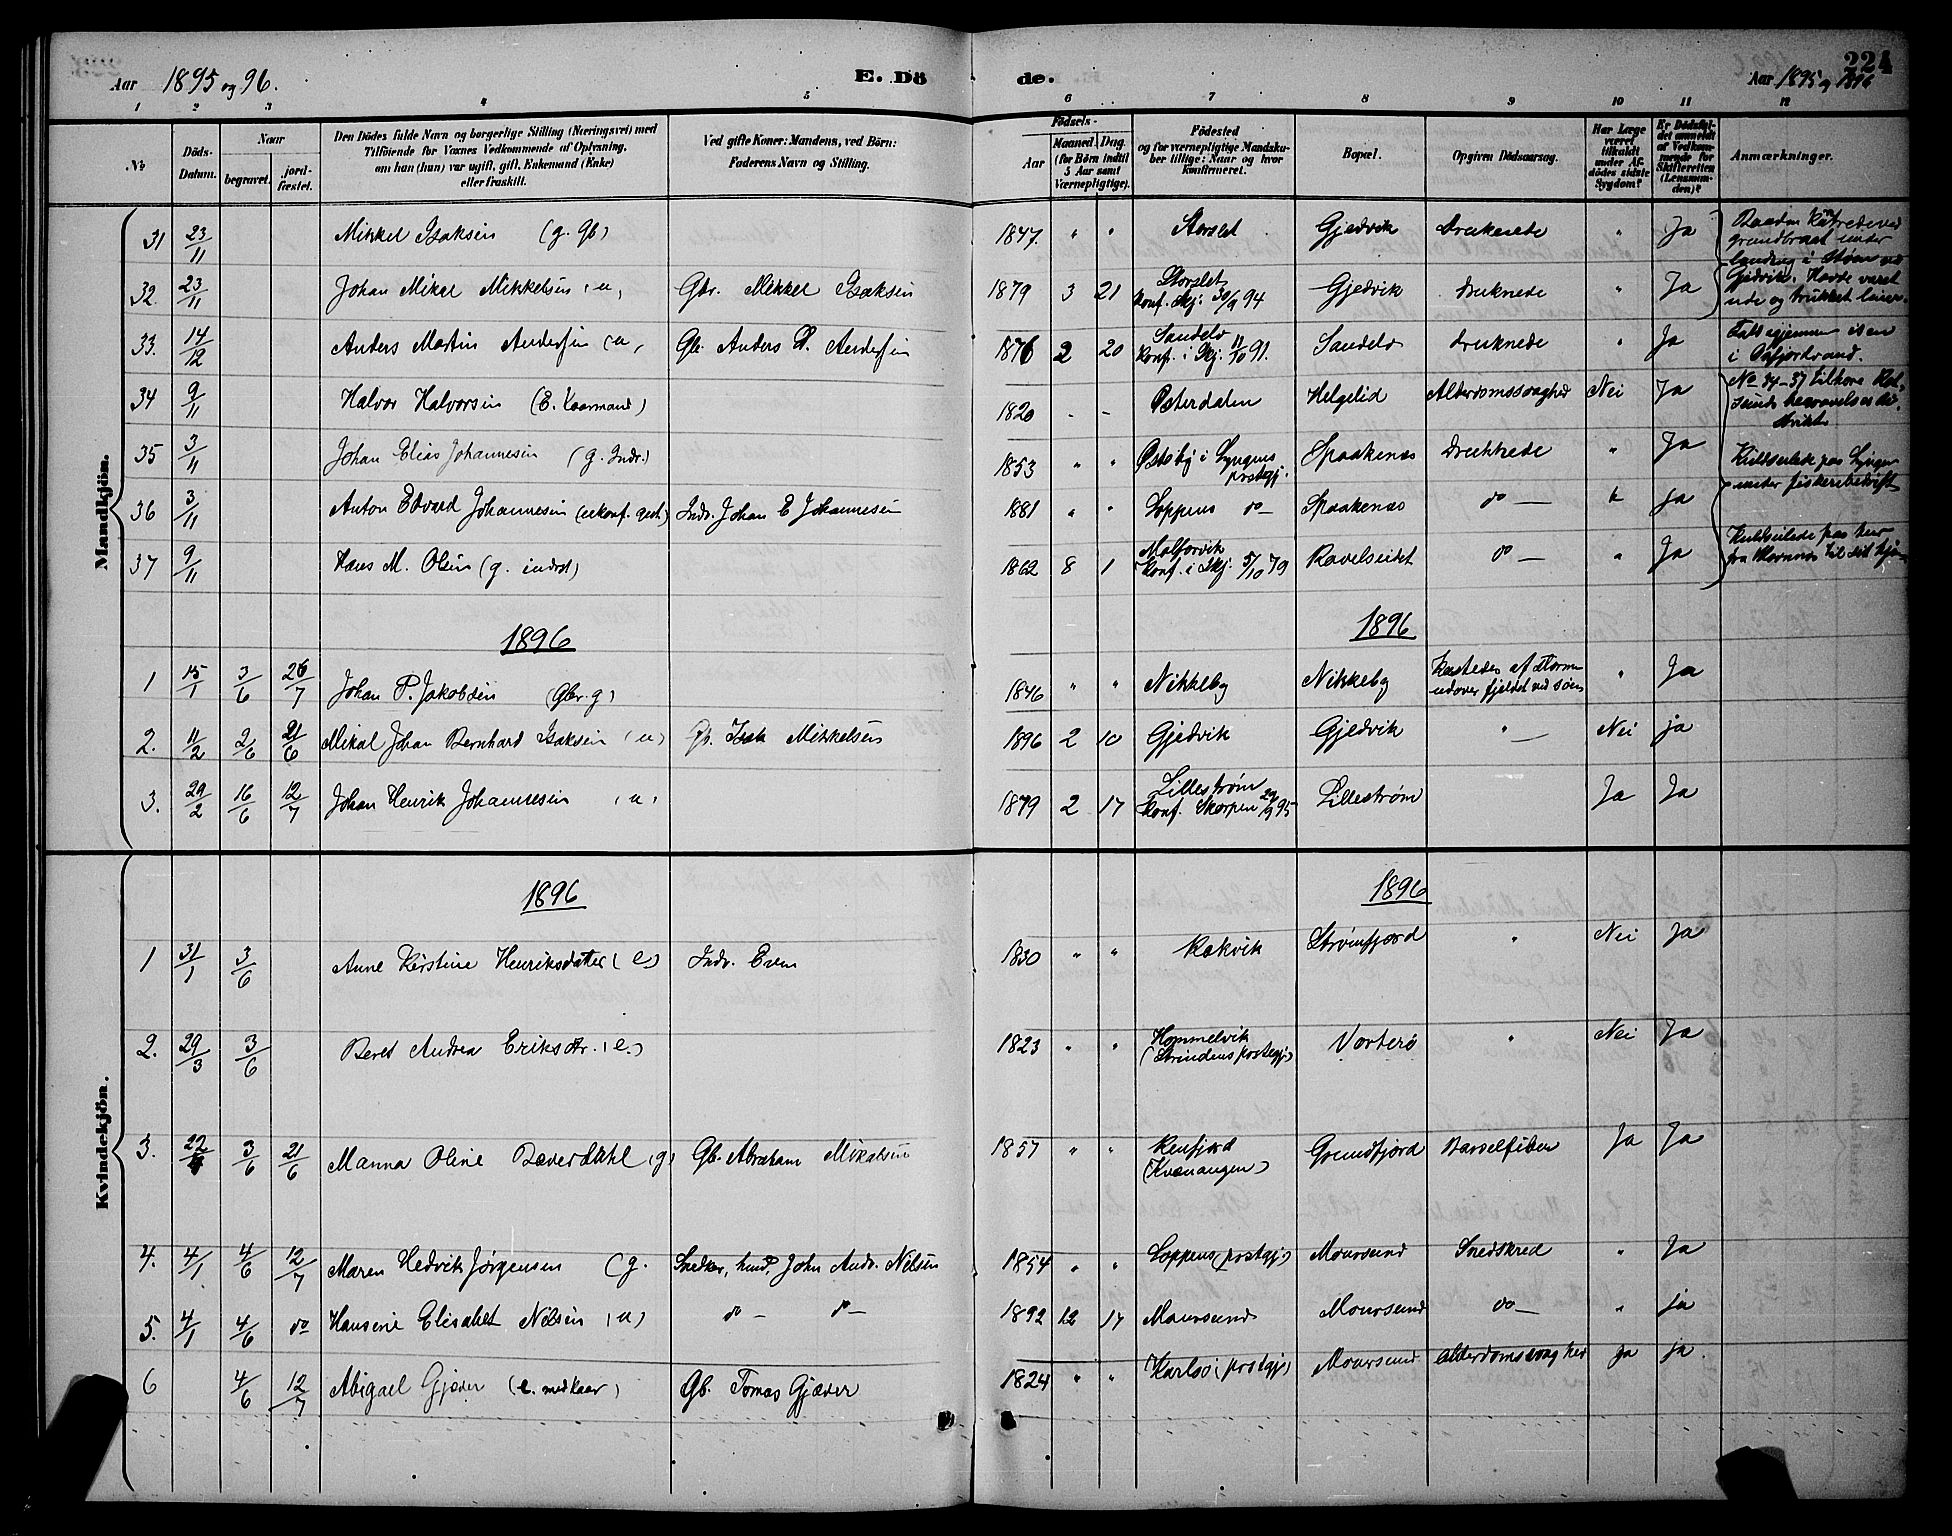 Aar 1895 og 96.
E. Dö
de.
Aar 1895 og 1896
224
1 2 3 4 5 6 7 8 9 10 11 12
№
Döds-Datum.
Naar
begravet.
jord-fæstet.
Den Dödes fulde Navn og borgerlige Stilling (Næringsvei) med
Tilföiende for Voxnes Vedkommende af Oplysning,
om han (hun) var ugift, gift, Enkemand (Enke)
eller fraskilt.
Ved gifte Koner: Mandens, ved Börn:
Faderens Navn og Stilling.
Födsels-
Aar
Maaned. Dag.
(for Börn indtil
5 Aar samt
Værnepligtige).
Födested
og for værnepligtige Mandsku-
ber tillige: Naar og hvor
konfirmeret.
Bopæl.
Opgiven Dödsaarsag.
Har Læge
været
tilkaldt
under Af-
dödes sidste
Sygdom?
Er Dödsfal-
det anmeldt
af Vedkom-
mende for
Skifteretten
(Lensman-
den)?
Anmærkninger.
Mandkjön.
31 23/11 Mikkel Isaksen (g. gb) 1847 " " Storslet Gjedvik Druknede " Ja
Baaden kantrede ved
grundbraat under
landing i Storm ved
Gjedvik. Havde været
ude og trukket
32. 23/11 Johan Mikal Mikkelsen (u) Gbr. Mikkel Isaksen 1879 3 21 Storslet
konf. Skj. 30/9 94 Gjedvik druknede " Ja
33. 14/12 Anders Martin Andersen (u) Gb. Anders P. Andersen 1876 2 20 Sandelv
konf. i Skj. 11/10 91. Sandelv druknede " Ja
Faldt igjennem isen
i Oxfjordvand.
34 9/11 Halvor Halvorsen (E. Kaarmand) 1820 - - Østerdalen Helgelid Alderdomssvaghed Nei Ja
No 34-37 tilhøre
35 3/11 Johan Elias Johannesen (g. Indr.) 1853 " " Østeby i Lyngens
prstegj. Spaakenæs Druknede " Ja
Kuldseilede paa Lyngen
under fiskeribedrift
36 3/11 Anton Edvard Johannesen (ukonf. gut) Indr. Johan E Johannesen 1881 " " Loppens do— Spaakenæs do — " Ja
37 9/11 Hans M. Olsen (g. inderst) 1862 8 1
konf. i Skj. 5/10 79 Ravelseidet do — " Ja
Kuldseilede paa
1896
1896
1 15/1 3/6 26/7 Johan P. Jakobsen (Gbr. g) 1846 " " Nikkeby Nikkeby Kastedes af storm
udover fjeldet ved søen " Ja
2. 11/2 2/6 21/6 Mikal Johan Bernhard Isaksen (u) Gb. Isak Mikkelsen 1896 2 10 Gjedvik Gjedvik " — Nei ja
3. 29/2 16/6 12/7 Johan Henrik Johannesen (u) 1879 2 17 Lillestrøm
konf. Skorpen 29/9 95 Lillestrøm Ja Ja
Kvindekjön.
1896
1896
1 31/1 3/6 Anne Kirstine Henriksdatter (e) Indr. Even 1830 " " Rakvik Strømfjord " Nei Ja
2. 29/3 3/6 Beret Andrea Eriksdtr. (e.) 1823 " " Hommelvik
(Strindens prstegj.) Vorterø " Nei Ja
3. 22/4 3/6 21/6 Manna Oline Bæverdahl (g) Gb. Abraham Mikalsen 1857 " " Renfjord
(Kvænangen) Grundfjord Barselfeber Ja Ja
4. 4/1 4/6 12/7 Maren Hedvik Jørgensen (g. Snedker, John Andr. Nilsen 1854 " " Loppens (prstegj) Maursund Snedskred " Ja
5. 4/1 4/6 do Hansine Elisabet Nilsen (u) do — do — 1892 12 17 Maursund Maursund do — " ja
6 4/6 12/7 Abigael Gjæver (e. med kaar) Gb. Tomas Gjæver 1824 " " Karlsø (prstegj) Maursund Alderdomssvaghed Ja ja.